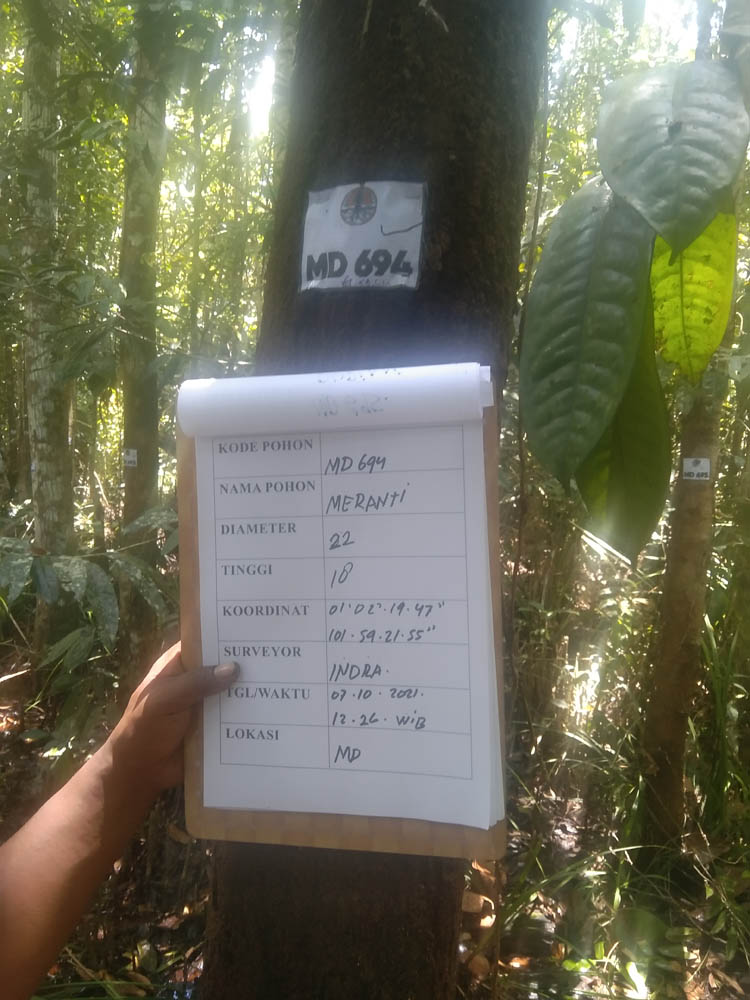 MD 694
KODE POHON
MD 694
NAMA POHON
MERANTI
DIAMETER
22
TINGGI
18
KOORDINAT
01°02'.19.47"
101.59.21.55"
SURVEYOR
INDRA.
TGL/WAKTU
07.10.2021.
12.26. WIB
LOKASI
MD
MD 695